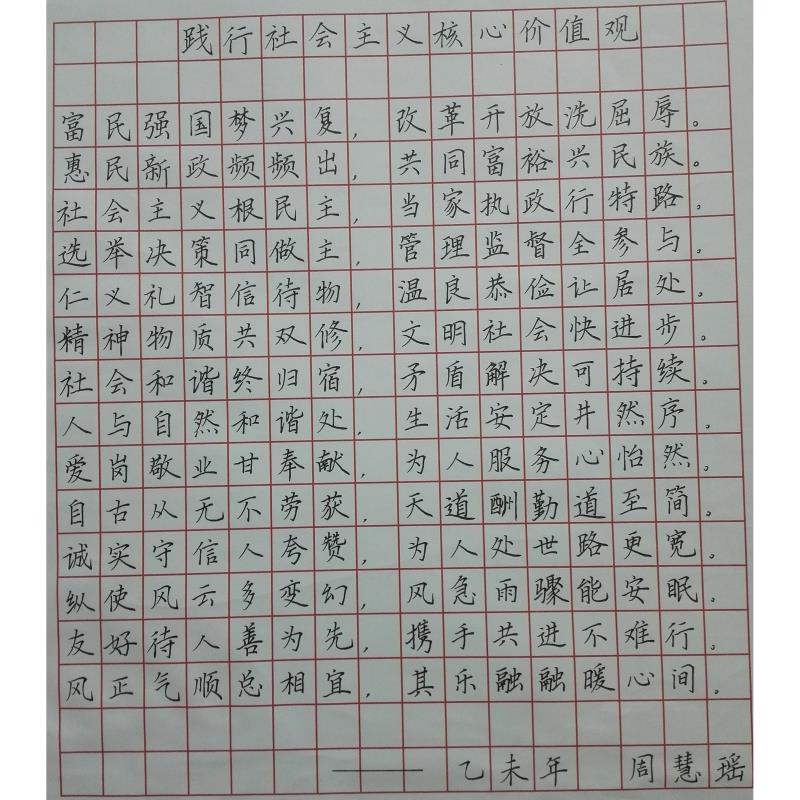 践行社会主义核心价值观
富民强国梦兴复，改革开放洗屈辱。
惠民新政频频出，共同富裕兴民族。
社会主义根民主，当家执政行特路。
选举决策同做主，管理监督全参与。
仁义礼智信待物，温良恭俭让居处。
精神物质共双修，文明社会快进步。
社会和谐终归宿，矛盾解决可持续。
人与自然和谐处，生活安定井然序。
爱岗敬业甘奉献，为人服务心怡然。
自古从无不劳获，天道酬勤道至简。
诚实守信人夸赞，为人处世路更宽。
纵使风云多变幻，风急雨骤能安眠。
友好待人善为先，携手共进不难行。
风正气顺总相宜，其乐融融暖心间。
——乙未年 周慧瑶